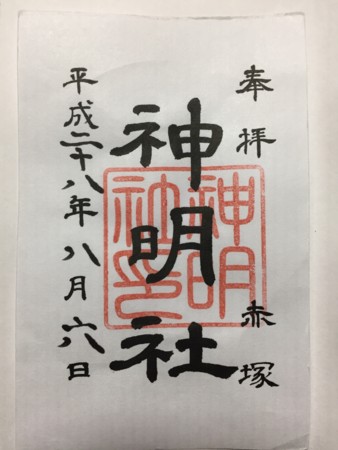 奉拝 赤塚
神明社
神明社印
平成二十八年八月六日